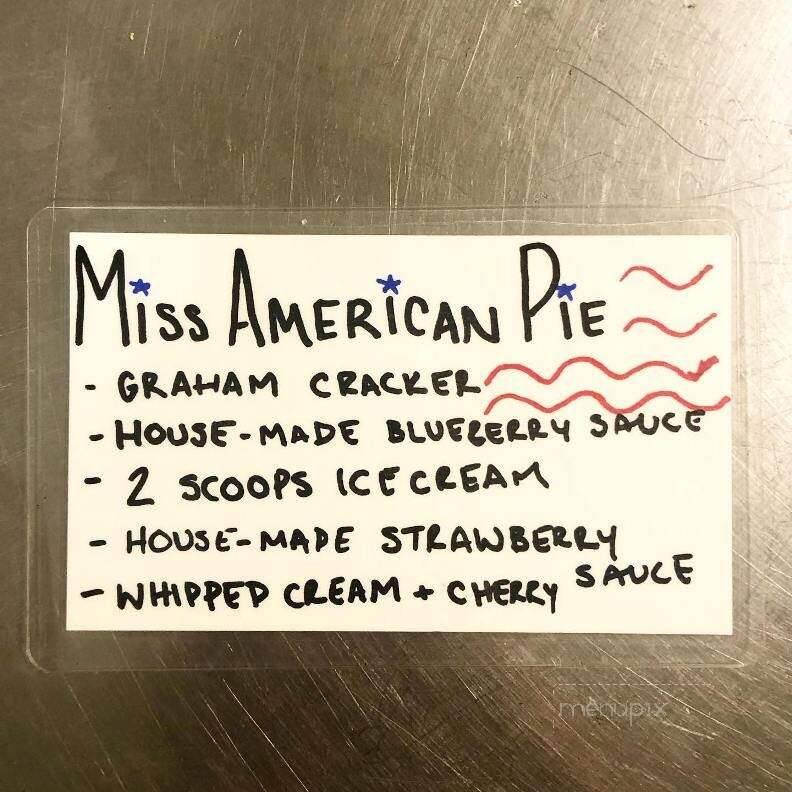 Miss American Pie
- GRAHAM CRACKER
- HOUSE-MADE BLUEBERRY SAUCE
- 2 SCOOPS ICE CREAM
- HOUSE-MADE STRAWBERRY SAUCE
- WHIPPED CREAM + CHERRY
menupix